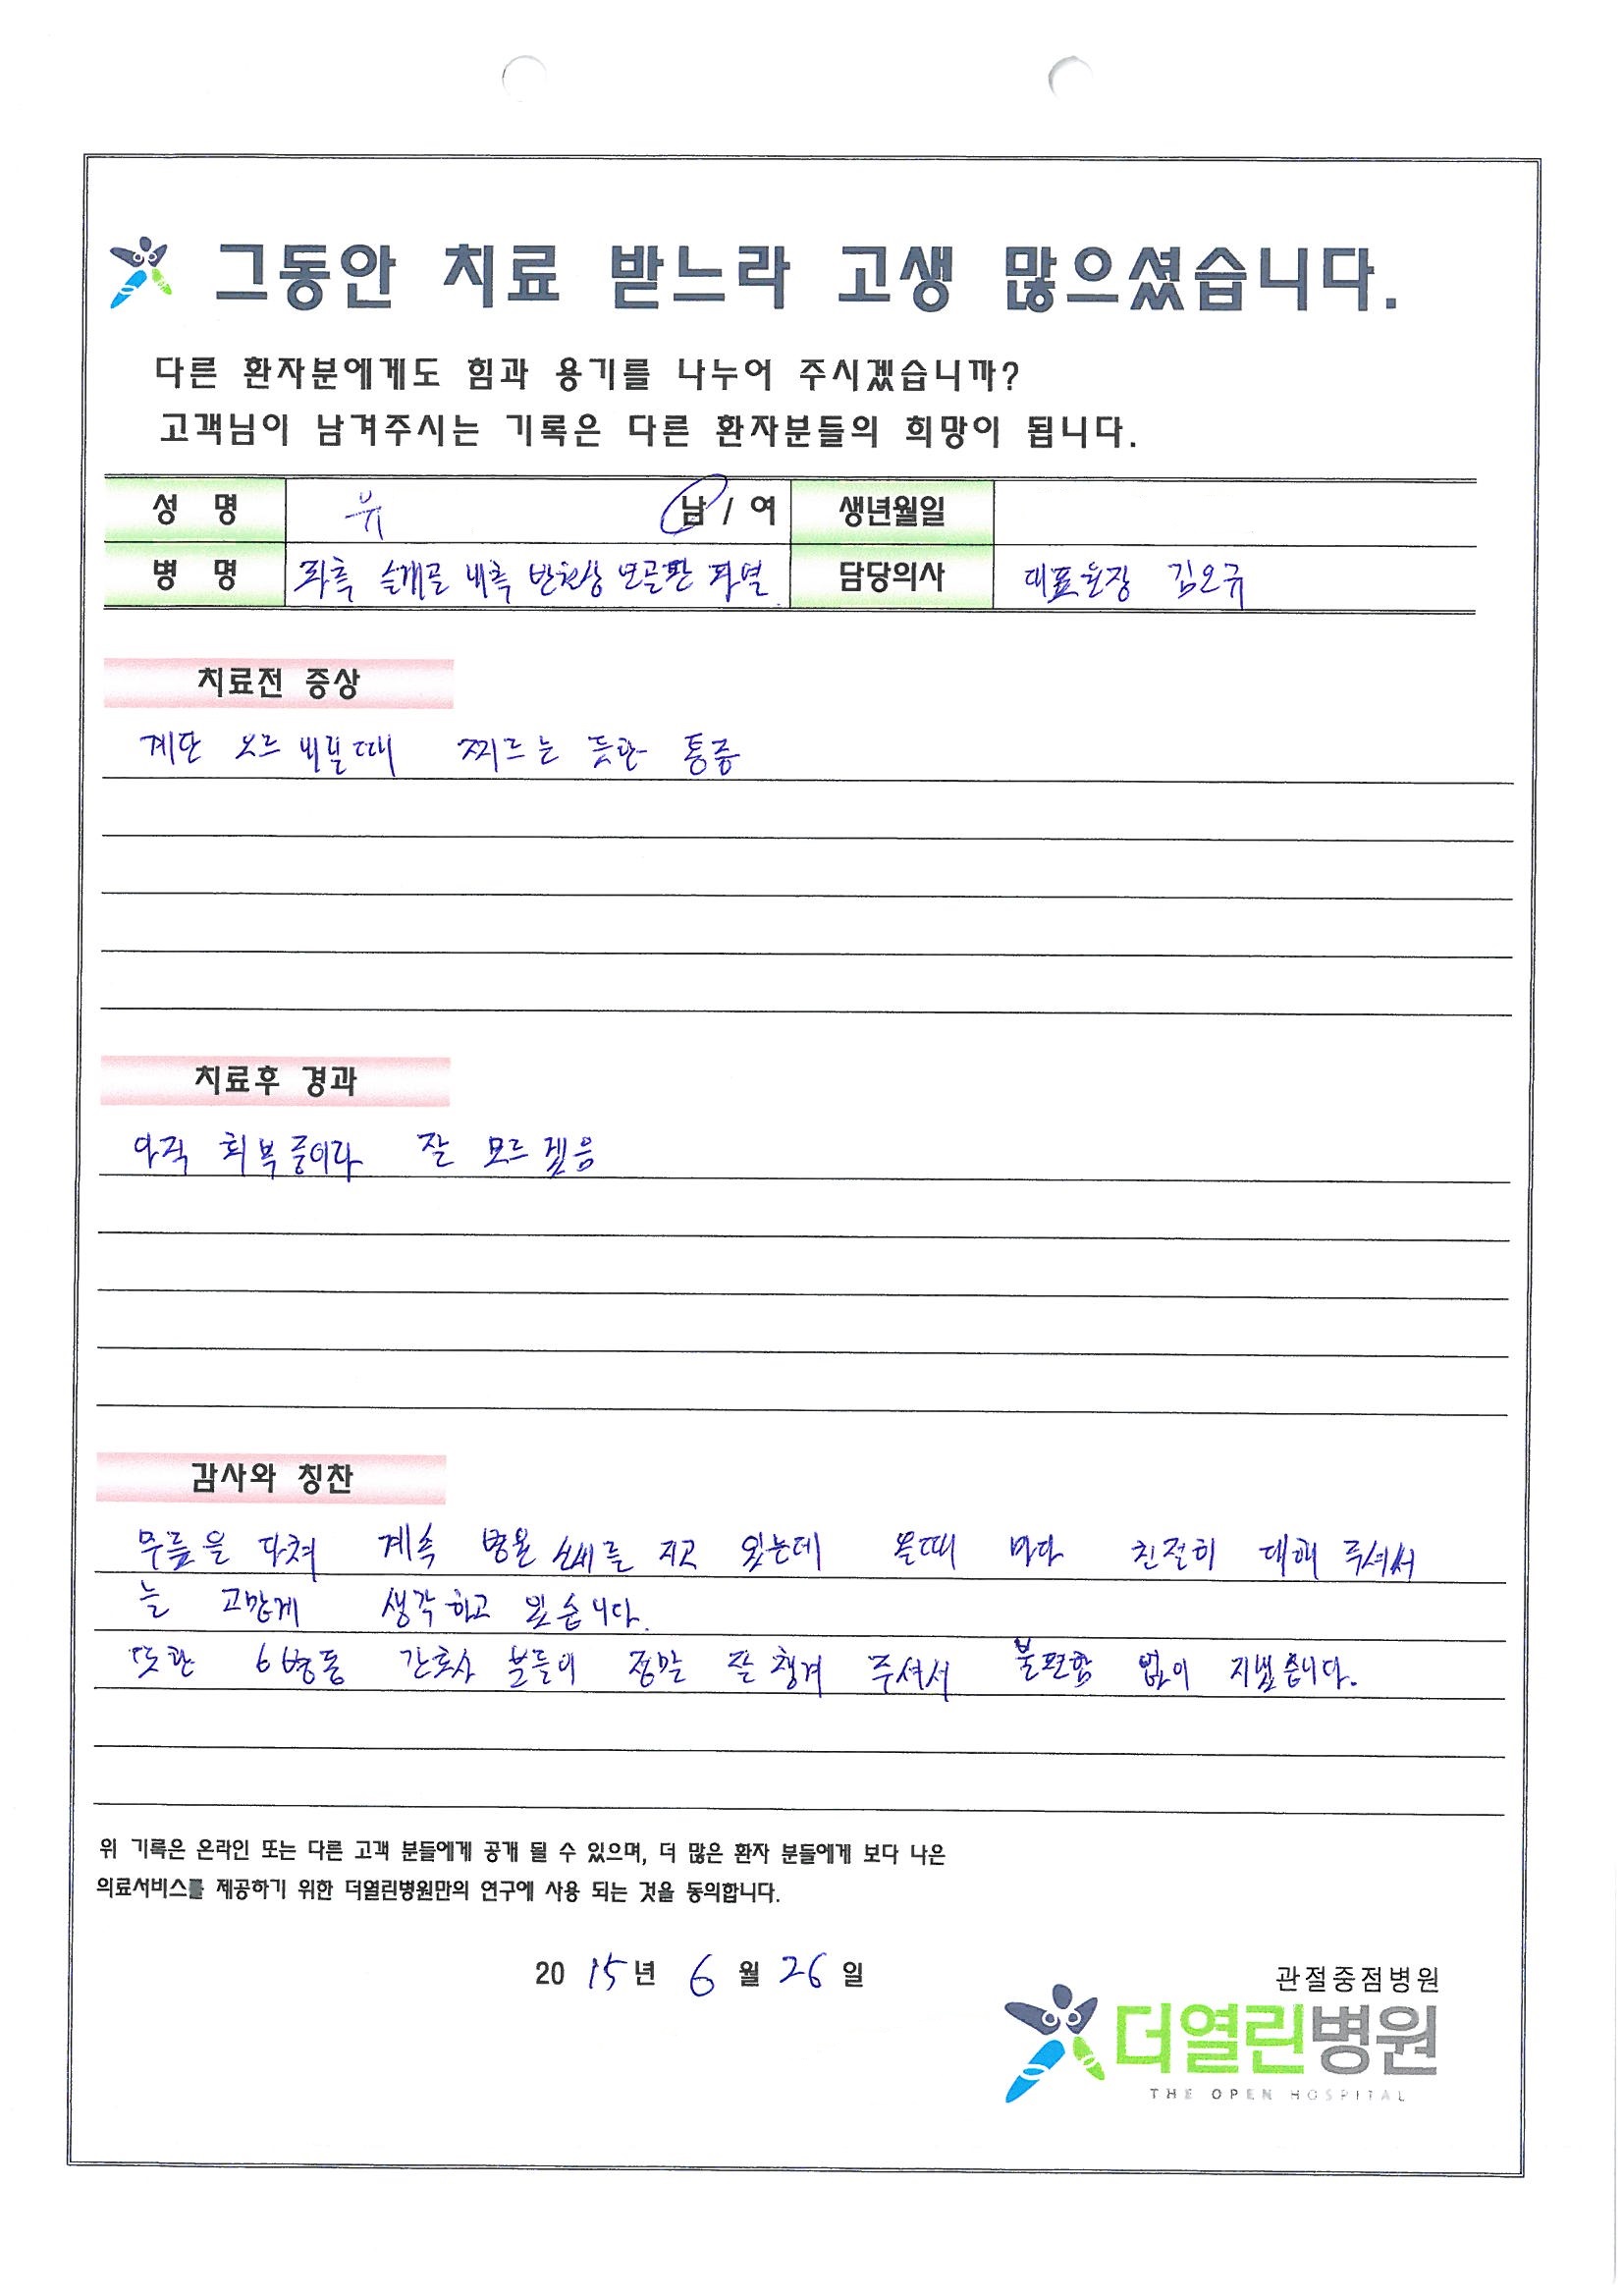 그동안 치료 받느라 고생 많으셨습니다.
다른 환자분에게도 힘과 용기를 나누어 주시겠습니까?
고객님이 남겨주시는 기록은 다른 환자분들의 희망이 됩니다.
성 명 유 남 / 여 생년월일
병 명 좌측 슬개골 내측 반월상 연골판 파열 담당의사 대표원장 김오규
치료전 증상
계단 오르 내릴때 찌르는 듯한 통증
치료후 경과
아직 회복중이라 잘 모르겠음
감사와 칭찬
무릎을 다쳐 계속 병원 신세를 지고 있는데 올때 마다 친절히 대해 주셔서
늘 고맙게 생각하고 있습니다.
또한 6병동 간호사 분들이 정말 잘 챙겨 주셔서 불편함 없이 지냈습니다.
위 기록은 온라인 또는 다른 고객 분들에게 공개 될 수 있으며, 더 많은 환자 분들에게 보다 나은
의료서비스를 제공하기 위한 더열린병원만의 연구에 사용 되는 것을 동의합니다.
20 15년 6 월 26 일
관절중점병원
더열린병원
THE OPEN HOSPITAL